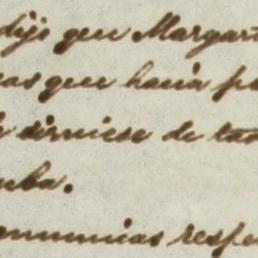 dijo que Margar
as que hacía p
sirviese de ta
eba.
enuncias respe